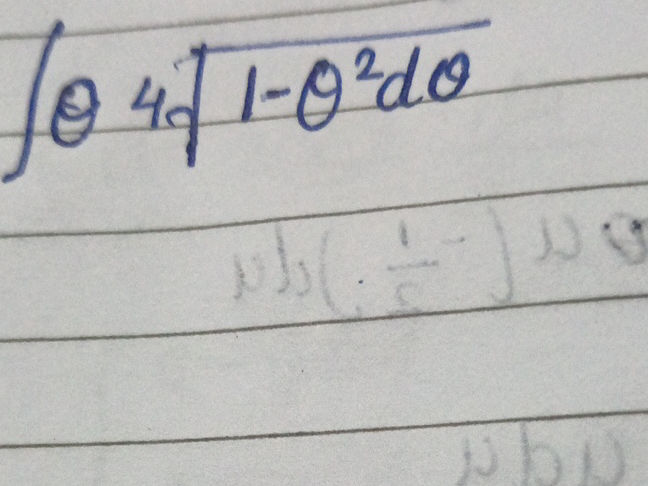 ∫θ 4√1-θ²dθ